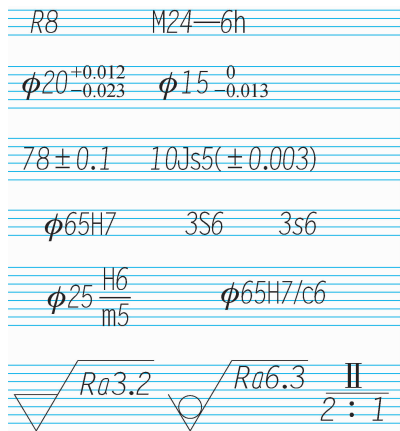 R8 M24—6h
ϕ20 +0.012 −0.023 ϕ15 0 −0.013
78±0.1 10Js5(±0.003)
ϕ65H7 3S6 3s6
ϕ25 H6/m5 ϕ65H7/c6
Ra3.2 Ra6.3 Ⅱ
2 : 1